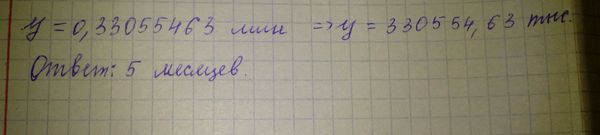 y = 0,33055463 млн => y = 330554,63 тыс.
Ответ: 5 месяцев.